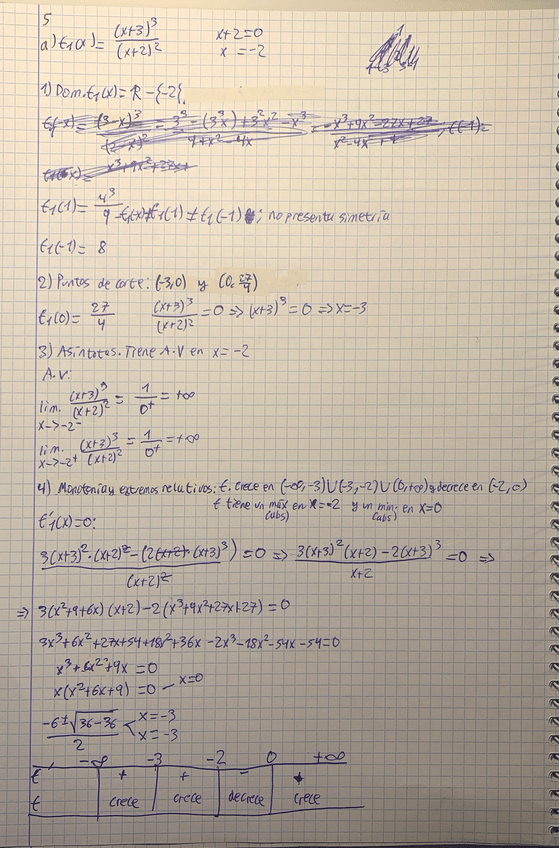 5
a) f₁(x) = (x+3)³/(x+2)²   x+2=0
x = -2
1) Dom. f₁(x) = R - {-2}
f₁(1) = 4³/9   f₁(1) ≠ f₁(-1) ; no presenta simetría
f₁(-1) = 8
2) Puntos de corte: (-3,0) y (0, 27/4)
f₁(0) = 27/4   (x+3)³/(x+2)² = 0 => (x+3)³ = 0 => x=-3
3) Asíntotas. Tiene A.V en x = -2
A.V:
lim. x->-2⁻ (x+3)³/(x+2)² = 1/0⁺ = +∞
lim. x->-2⁺ (x+3)³/(x+2)² = 1/0⁺ = +∞
4) Monotonía y estremos relativos: f. crece en (-∞,-3)∪(-3,-2)∪(0,+∞) y decrece en (-2,0)
f tiene un máx (abs) en x=-2 y un min. (abs) en x=0
f'₁(x)=0:
(3(x+3)²·(x+2)² - (2(x+2)·(x+3)³))/(x+2)² = 0 => (3(x+3)²(x+2) - 2(x+3)³)/(x+2) = 0 =>
=> 3(x²+9+6x)(x+2) - 2(x³+9x²+27x+27) = 0
3x³+6x²+27x+54+18x²+36x-2x³-18x²-54x-54=0
x³+6x²+9x = 0
x(x²+6x+9) = 0 - x=0
(-6±√36-36)/2 < x=-3
x=-3
-∞ -3 -2 0 +∞
f' + + - +
f crece crece decrece crece